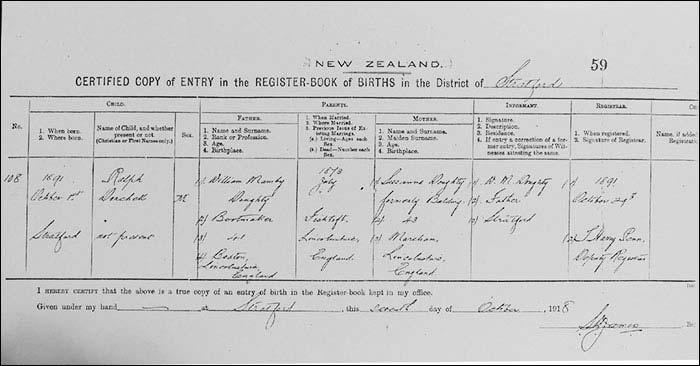 NEW ZEALAND.
59
CERTIFIED COPY of ENTRY in the REGISTER-BOOK of BIRTHS in the District of Stratford
No.
CHILD.
1. When born.
2. Where born.
Name of Child, and whether
present or not.
(Christian or First Names only.)
Sex.
PARENTS.
FATHER.
1. Name and Surname.
2. Rank or Profession.
3. Age.
4. Birthplace.
1. When Married.
2. Where Married.
3. Previous Issue of Existing Marriage.
(a.) Living—Each Sex.
(b.) Dead—Number each Sex.
MOTHER.
1. Name and Surname.
2. Maiden Surname.
3. Age.
4. Birthplace.
INFORMANT.
1. Signature.
2. Description.
3. Residence.
4. If entry a correction of a former entry, Signatures of Witnesses attesting the same.
REGISTRAR.
1. When registered.
2. Signature of Registrar.
Name, if added
Registration
108
1891
October 1st
Stratford
Ralph
not present
M
(1) William Manby
Doughty
(2) Bootmaker
(3) 41
(4) Boston,
Lincolnshire
England
1873
July
Fishtoft
Lincolnshire,
England.
(1) Susanna Doughty
formerly
(2) 43
(3) Mareham,
Lincolnshire,
England
(1) W. M. Doughty
(2) Father
(3) Stratford
(1) 1891
October 29th
(2) T Harry Penn,
Deputy Registrar
I HEREBY CERTIFY that the above is a true copy of an entry of birth in the Register-book kept in my office.
Given under my hand at Stratford, this seventh day of October, 1918